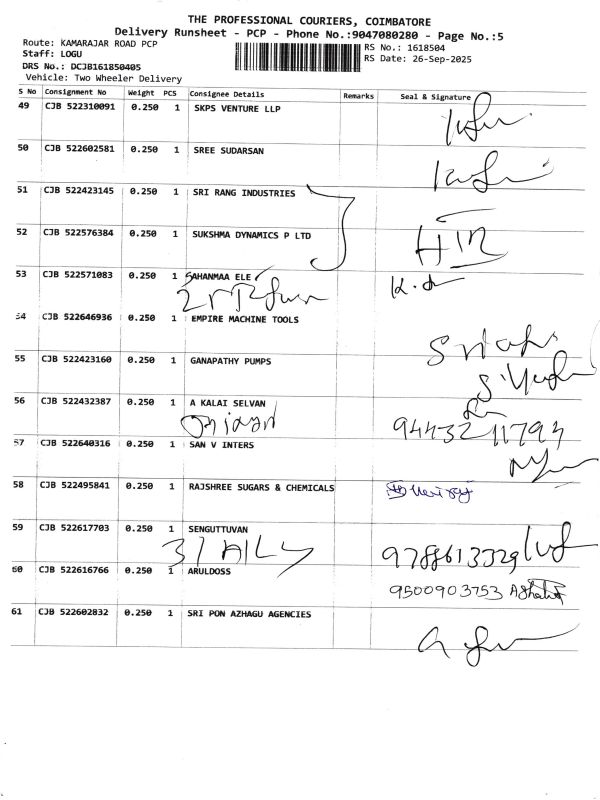 THE PROFESSIONAL COURIERS, COIMBATORE
Delivery Runsheet - PCP - Phone No.:9047080280 - Page No.:5
Route: KAMARAJAR ROAD PCP
RS No.: 1618504
Staff: LOGU
RS Date: 26-Sep-2025
DRS No.: DCJB161850405
Vehicle: Two Wheeler Delivery
S No Consignment No Weight PCS Consignee Details Remarks Seal & Signature
49 CJB 522310091 0.250 1 SKPS VENTURE LLP
50 CJB 522602581 0.250 1 SREE SUDARSAN
51 CJB 522423145 0.250 1 SRI RANG INDUSTRIES
52 CJB 522576384 0.250 1 SUKSHMA DYNAMICS P LTD
53 CJB 522571083 0.250 1 SAHANMAA ELE
54 CJB 522646936 0.250 1 EMPIRE MACHINE TOOLS
55 CJB 522423160 0.250 1 GANAPATHY PUMPS
56 CJB 522432387 0.250 1 A KALAI SELVAN
94432 11794
57 CJB 522640316 0.250 1 SAN V INTERS
58 CJB 522495841 0.250 1 RAJSHREE SUGARS & CHEMICALS
59 CJB 522617703 0.250 1 SENGUTTUVAN
9788613329
60 CJB 522616766 0.250 1 ARULDOSS
9500903753
61 CJB 522602832 0.250 1 SRI PON AZHAGU AGENCIES